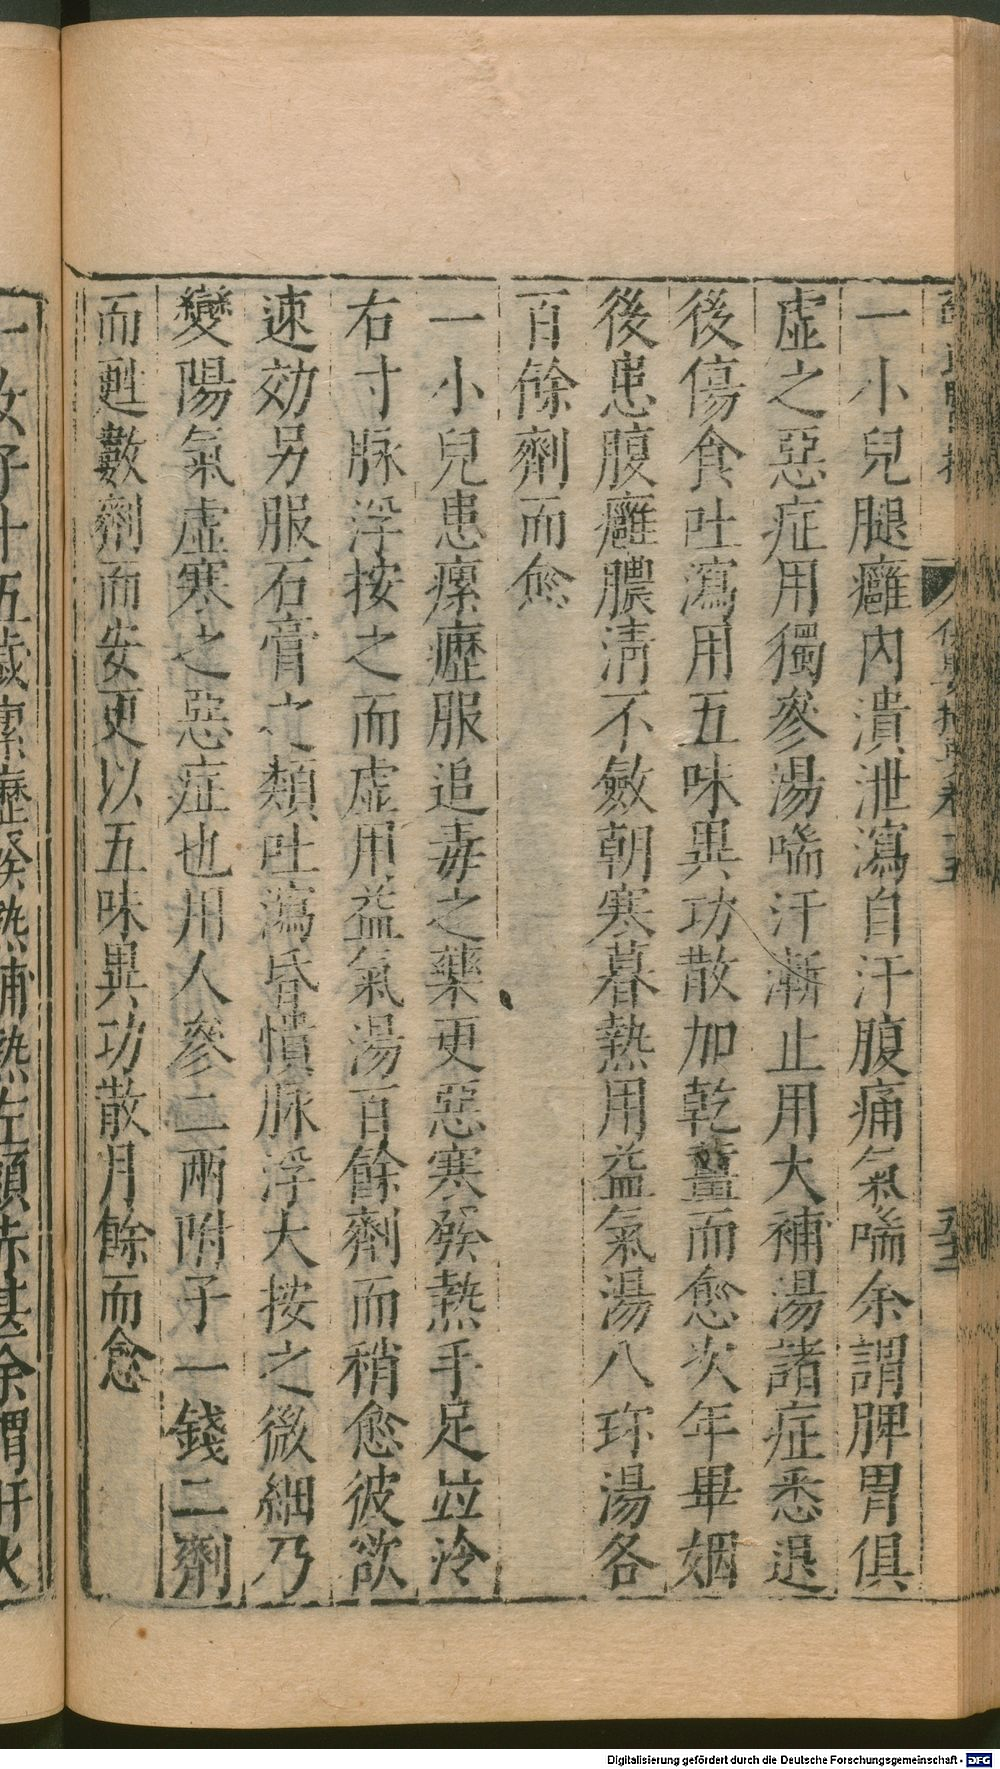 一小兒腿癰內潰泄瀉自汗腹痛氣喘余謂脾胃俱
虛之惡症用獨參湯喘汗漸止用大補湯諸症悉退
後傷食吐瀉用五味異功散加乾薑而愈次年畢姻
後患腹癰膿清不斂朝寒暮熱用益氣湯八珎湯各
百餘劑而愈
一小兒患瘰癧服追毒之藥更惡寒發熱手足並冷
右寸脉浮按之而虛用益氣湯百餘劑而稍愈彼欲
速効另服石膏之類吐瀉昏憒脉浮大按之微細乃
變陽氣虛寒之惡症也用人參二兩附子一錢二劑
而甦數劑而安更以五味異功散月餘而愈
一女子十五歲瘰癧發熱晡熱左頰赤甚余謂肝火
Digitalisierung gefördert durch die Deutsche Forschungsgemeinschaft - DFG